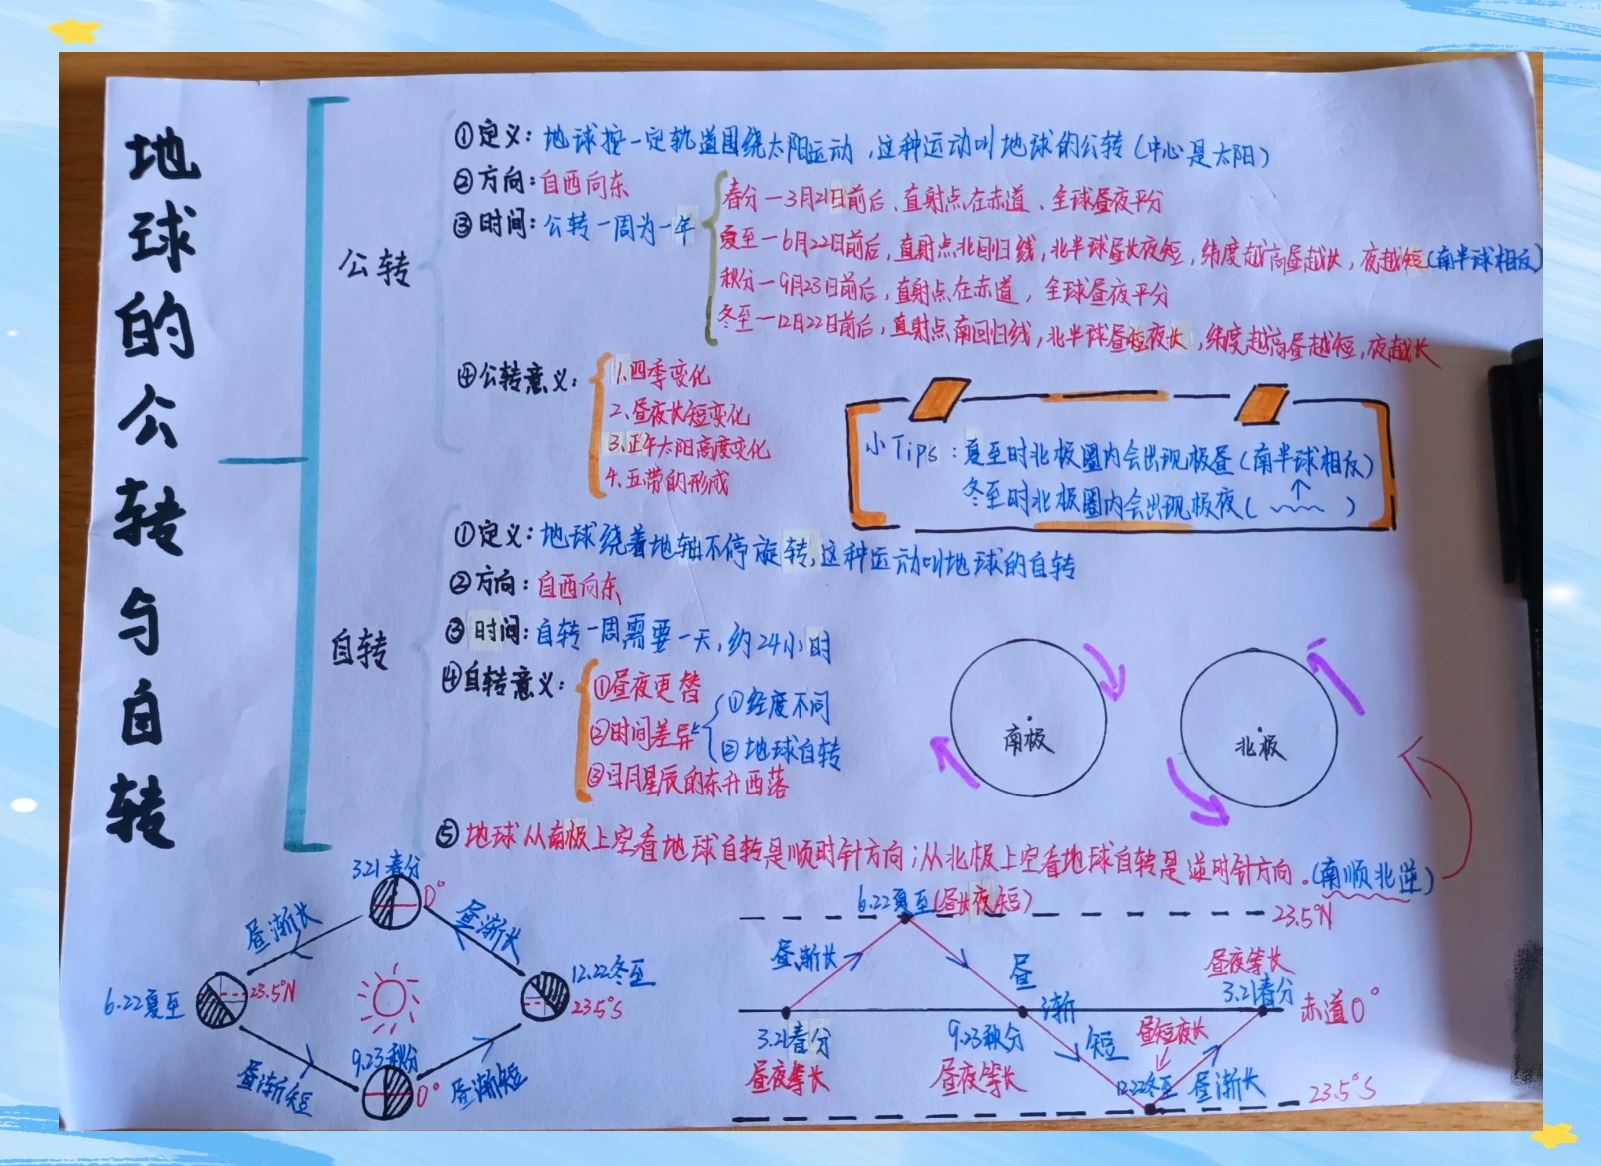 地球的公转与自转
公转
①定义：地球按一定轨道围绕太阳运动，这种运动叫地球的公转（中心是太阳）
②方向：自西向东
③时间：公转一周为一年
春分—3月21日前后、直射点在赤道、全球昼夜平分
夏至—6月22日前后，直射点北回归线，北半球昼长夜短，纬度越高昼越长，夜越短（南半球相反）
秋分—9月23日前后，直射点在赤道，全球昼夜平分
冬至—12月22日前后，直射点南回归线，北半球昼短夜长，纬度越高昼越短，夜越长
④公转意义：
1.四季变化
2.昼夜长短变化
3.正午太阳高度变化
4.五带的形成
小Tips：夏至时北极圈内会出现极昼（南半球相反）
冬至时北极圈内会出现极夜（ ）
自转
①定义：地球绕着地轴不停旋转，这种运动叫地球的自转
②方向：自西向东
③时间：自转一周需要一天，约24小时
④自转意义：
①昼夜更替
②时间差异
①经度不同
②地球自转
③日月星辰的东升西落
南极
北极
⑤地球从南极上空看地球自转是顺时针方向；从北极上空看地球自转是逆时针方向。（南顺北逆）
3.21春分
0°
昼渐长
昼渐长
6.22夏至
23.5°N
12.22冬至
23.5°S
9.23秋分
0°
昼渐短
昼渐短
6.22夏至（昼长夜短）
23.5°N
昼渐长
昼渐短
昼夜等长
3.21春分
赤道0°
3.21春分
昼夜等长
9.23秋分
昼夜等长
昼短夜长
12.22冬至
昼渐长
23.5°S